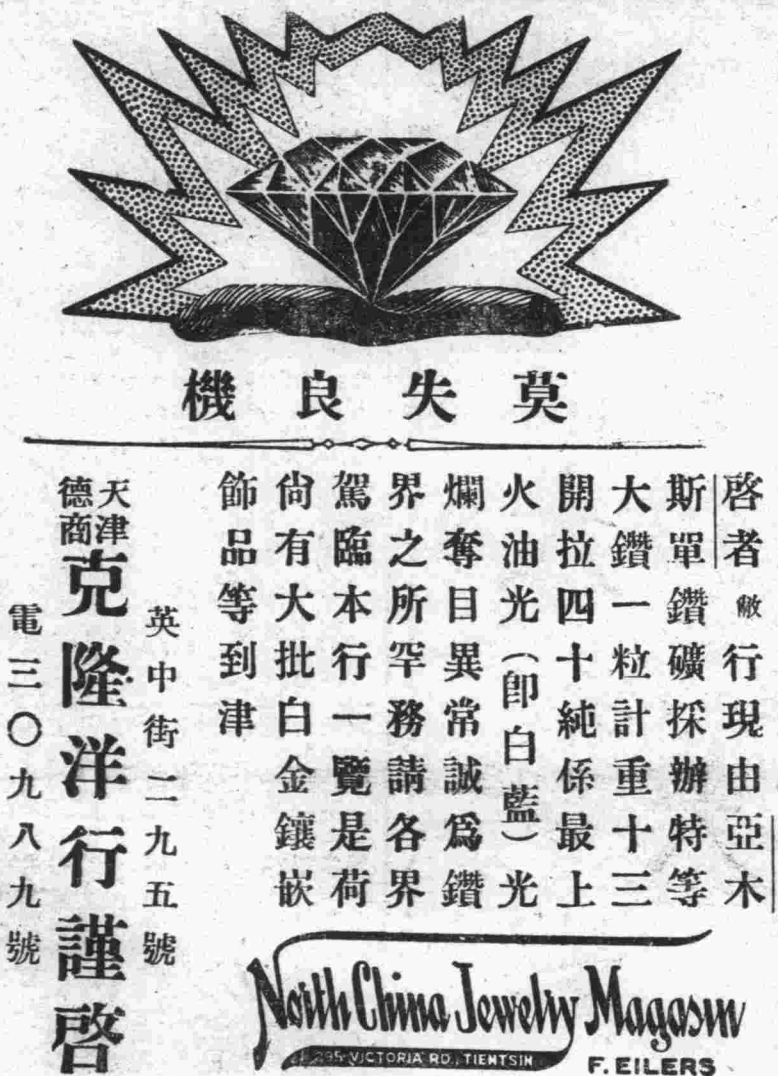 莫失良機
啓者敝行現由亞木
斯單鑽礦採辦特等
大鑽一粒計重十三
開拉四十純係最上
火油光(卽白藍)光
爛奪目異常誠爲鑽
界之所罕務請各界
駕臨本行一覽是荷
尙有大批白金鑲嵌
飾品等到津
英中街二九五號
天津
德商
克隆洋行謹啓
電三〇九八九號
North China Jewelry Magasin
295 VICTORIA RD., TIENTSIN
F. EILERS